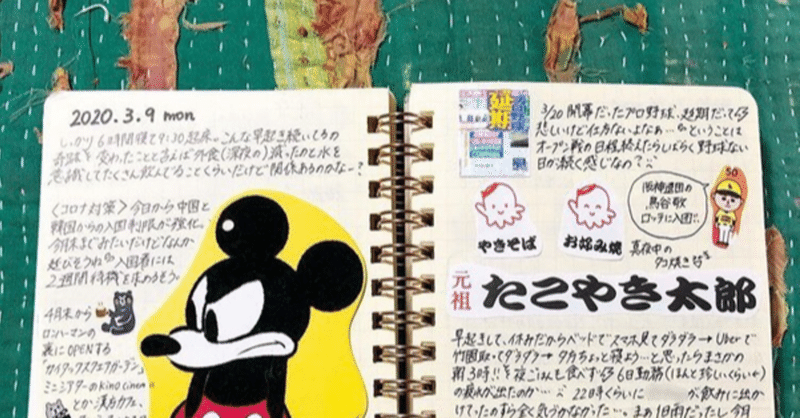 2020.3.9 mon
しっかり6時間寝て9:30起床。こんな早起き続いてるの
奇跡!! 変わったことと言えば外食(深夜の)減ったのと水を
意識してたくさん飲んでることくらいだけど関係あるのかなー?
〈コロナ対策〉今日から中国と
韓国からの入国制限が強化。
今月末までみたいだけどなんか
延びそうね 入国者には
2週間待機を求めるそう。
4月末から
ロンハーマンの
裏にOPENする
ミニシアターのkino cinema
とか漢方カフェ、
延期
3/20 開幕だったプロ野球、延期だって
悲しいけど仕方ないよなぁ… ということは
オープン戦の日程終えたらしばらく野球ない
日が続く感じなの?
50
阪神退団の
鳥谷敬
ロッテに入団!!
やきそば
お好み焼
真夜中の
タコ焼き
元祖
たこやき太郎
早起きして、休みだからベッドでスマホ見てダラダラ→Uberで
竹園取ってダラダラ→夕方ちょっと寝よーと思ったらまさかの
朝3時!! 夜ごはんも食べず 6日勤務(ほんと珍しいくらい)
の疲れが出たのか… 22時くらいに が飲みに出か
けてったのすら全く気づかなかった…